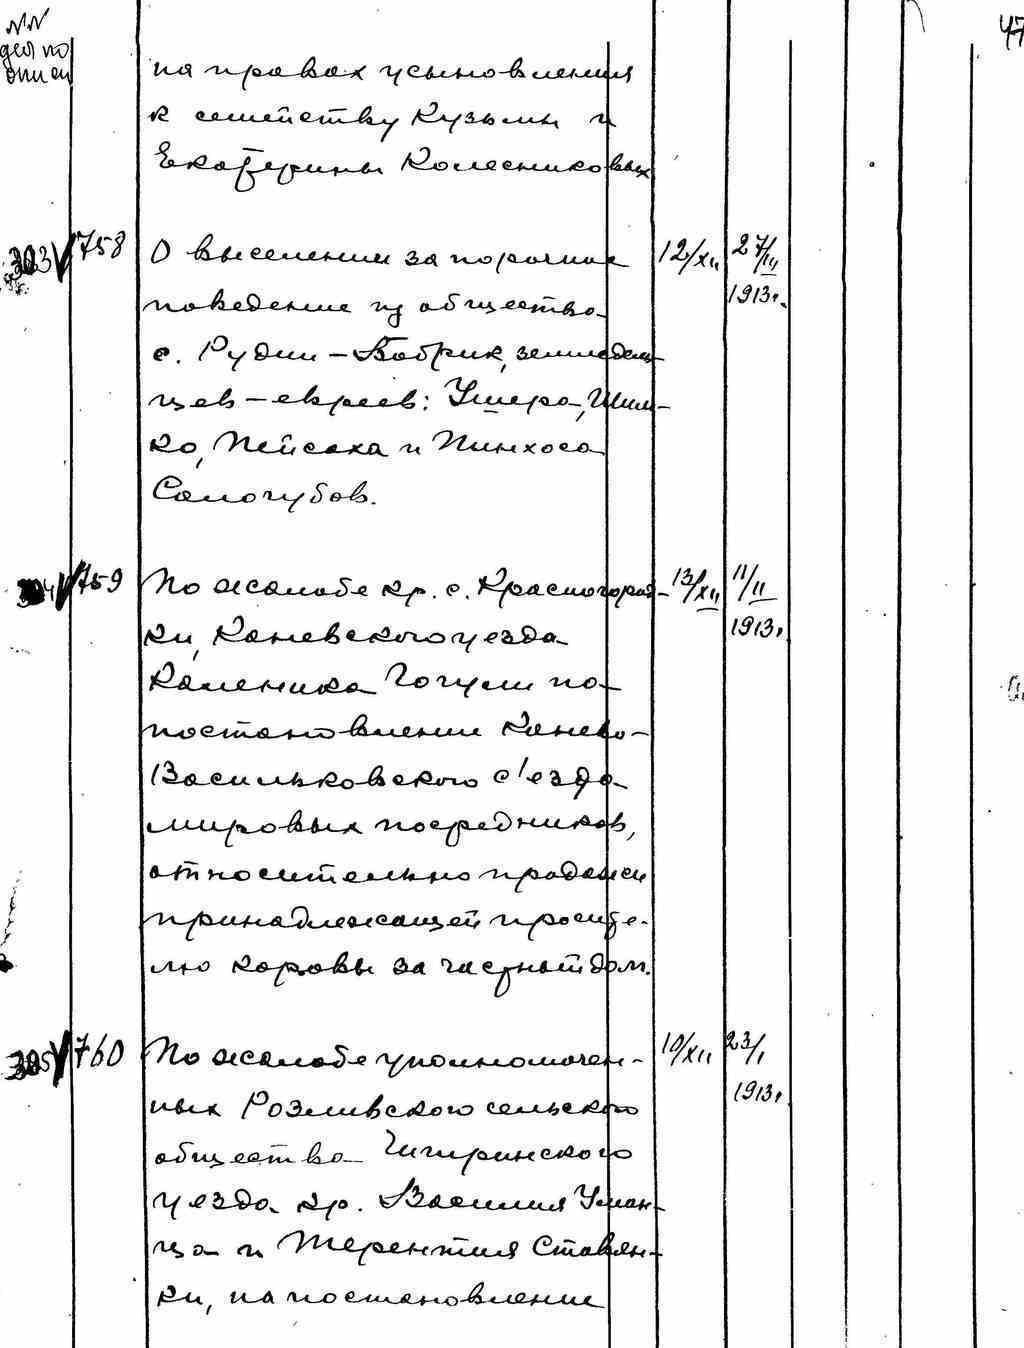 NN
дел по
описи
47
на правах усыновления
к семейству Кузьмы и
Екатерины Колесниковых
303 758 О выселении за порочное 12/XII 27/III
поведение из общества 1913г.
с. Рудни-Бобрик, земледель-
цев-евреев: Ушера, Шим-
ко, Пейсаха и Пинхоса
Салогубов.
304 759 По жалобе кр. с. Красногород- 13/XII 11/II
ки, Каневского уезда 1913г.
Каленика Гогули по
постановлении Канево-
Васильковского с'езда
мировых посредников,
относительно продажи
принадлежащей просите-
лю коровы за частный долг.
305 760 По жалобе уполномочен- 10/XII 23/I
ных Розливского сельского 1913г.
общества Чигиринского
уезда кр. Василия Уман-
ца и Терентия Ставян-
ки, на постановление